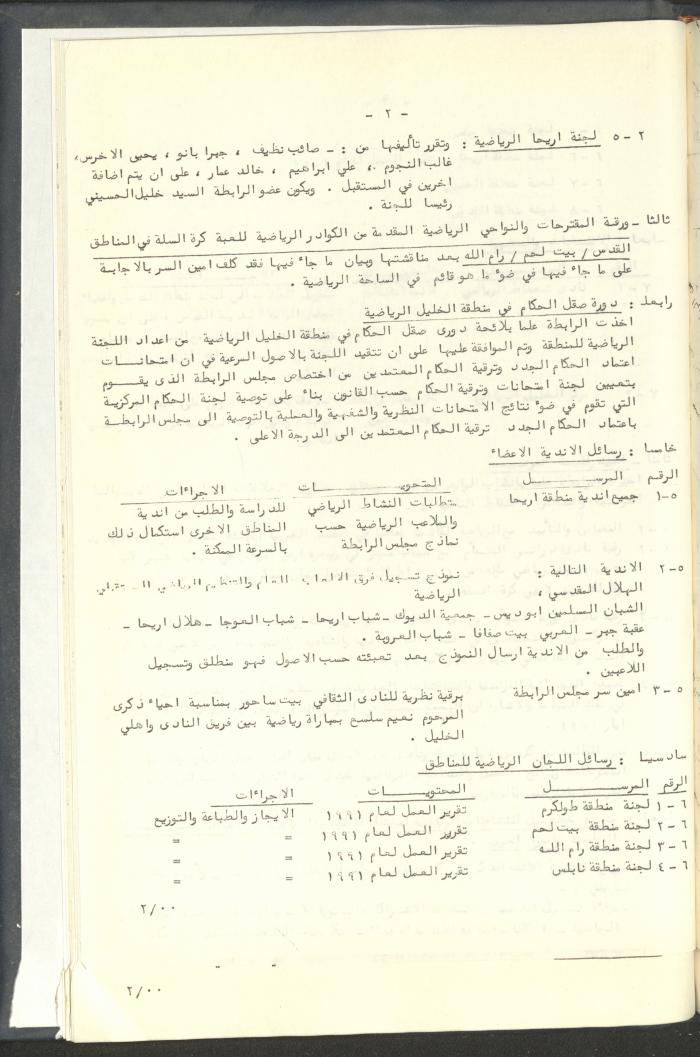 - ٢ -
٢ - ٥ لجنة اريحا الرياضية : وتقرر تأليفها من : - صائب نظيف ، جبرا بانو ، يحيى الاخرس،
غالب النجوم ،، علي ابراهيم ، خالد عمار ، على ان يتم اضافة
اخرين في المستقبل . ويكون عضو الرابطة السيد خليل الحسيني
رئيسا للجنة .
ثالثا - ورقة المقترحات والنواحي الرياضية المقدمة من الكوادر الرياضية للعبة كرة السلة في المناطق
القدس / بيت لحم / رام الله بعد مناقشتها وبيان ما جاء فيها فقد كلف امين السر بالاجابة
على ما جاء فيها في ضوء ما هو قائم في الساحة الرياضية .
رابعا : دورة صقل الحكام في منطقة الخليل الرياضية
اخذت الرابطة علما بلائحة دورى صقل الحكام في منطقة الخليل الرياضية من اعداد اللجنة
الرياضية للمنطقة وتم الموافقة عليها على ان تتقيد اللجنة بالاصول السرعية في ان امتحانـــات
اعتماد الحكام الجدد وترقية الحكام المعتمدين من اختصاص مجلس الرابطة الذى يقـــوم
بتعيين لجنة امتحانات وترقية الحكام حسب القانون بناء على توصية لجنة الحكام المركزيـة
التي تقوم في ضوء نتائج الامتحانات النظرية والشفهية والعملية بالتوصية الى مجلس الرابطــة
باعتماد الحكام الجدد ترقية الحكام المعتمدين الى الدرجة الاعلى .
خامسا : رسائل الاندية الاعضاء
الرقم المرســـل المتحويـــات الاجراءات
٥-١ جميع اندية منطقة اريحا متطلبات النشاط الرياضي للدراسة والطلب من اندية
والملاعب الرياضية حسب المناطق الاخرى استكمال ذلك
نماذج مجلس الرابطة بالسرعة الممكنة .
٥-٢ الاندية التالية : نموذج تسجيل فرق الالعاب
الهلال المقدسي ، الرياضية
الشبان المسلمين ابوديس - جمعية الديوك - شباب اريحا - شباب العوجا - هلال اريحا -
عقبة جبر - العربي بيت صفافا - شباب العروبة .
والطلب من الاندية ارسال النموذج بعد تعبئته حسب الاصول فهو منطلق وتسجيل
اللاعبين .
٥-٣ امين سر مجلس الرابطة برقية نظرية للنادى الثقافي بيت ساحور بمناسبة احياء ذكرى
المرحوم نعيم سلسع بمباراة رياضية بين فريق النادى واهلي
الخليل .
سادسـا : رسائل اللجان الرياضية للمناطق
الرقم المرســـل المحتويـــات الاجراءات
٦ - ١ لجنة منطقة طولكرم تقرير العمل لعام ١٩٩١ الايجاز والطباعة والتوزيع
٦ - ٢ لجنة منطقة بيت لحم تقرير العمل لعام ١٩٩١ = =
٦ - ٣ لجنة منطقة رام الله تقرير العمل لعام ١٩٩١ = =
٦ - ٤ لجنة منطقة نابلس تقرير العمل لعام ١٩٩١ = =
٢/٠٠
٢/٠٠